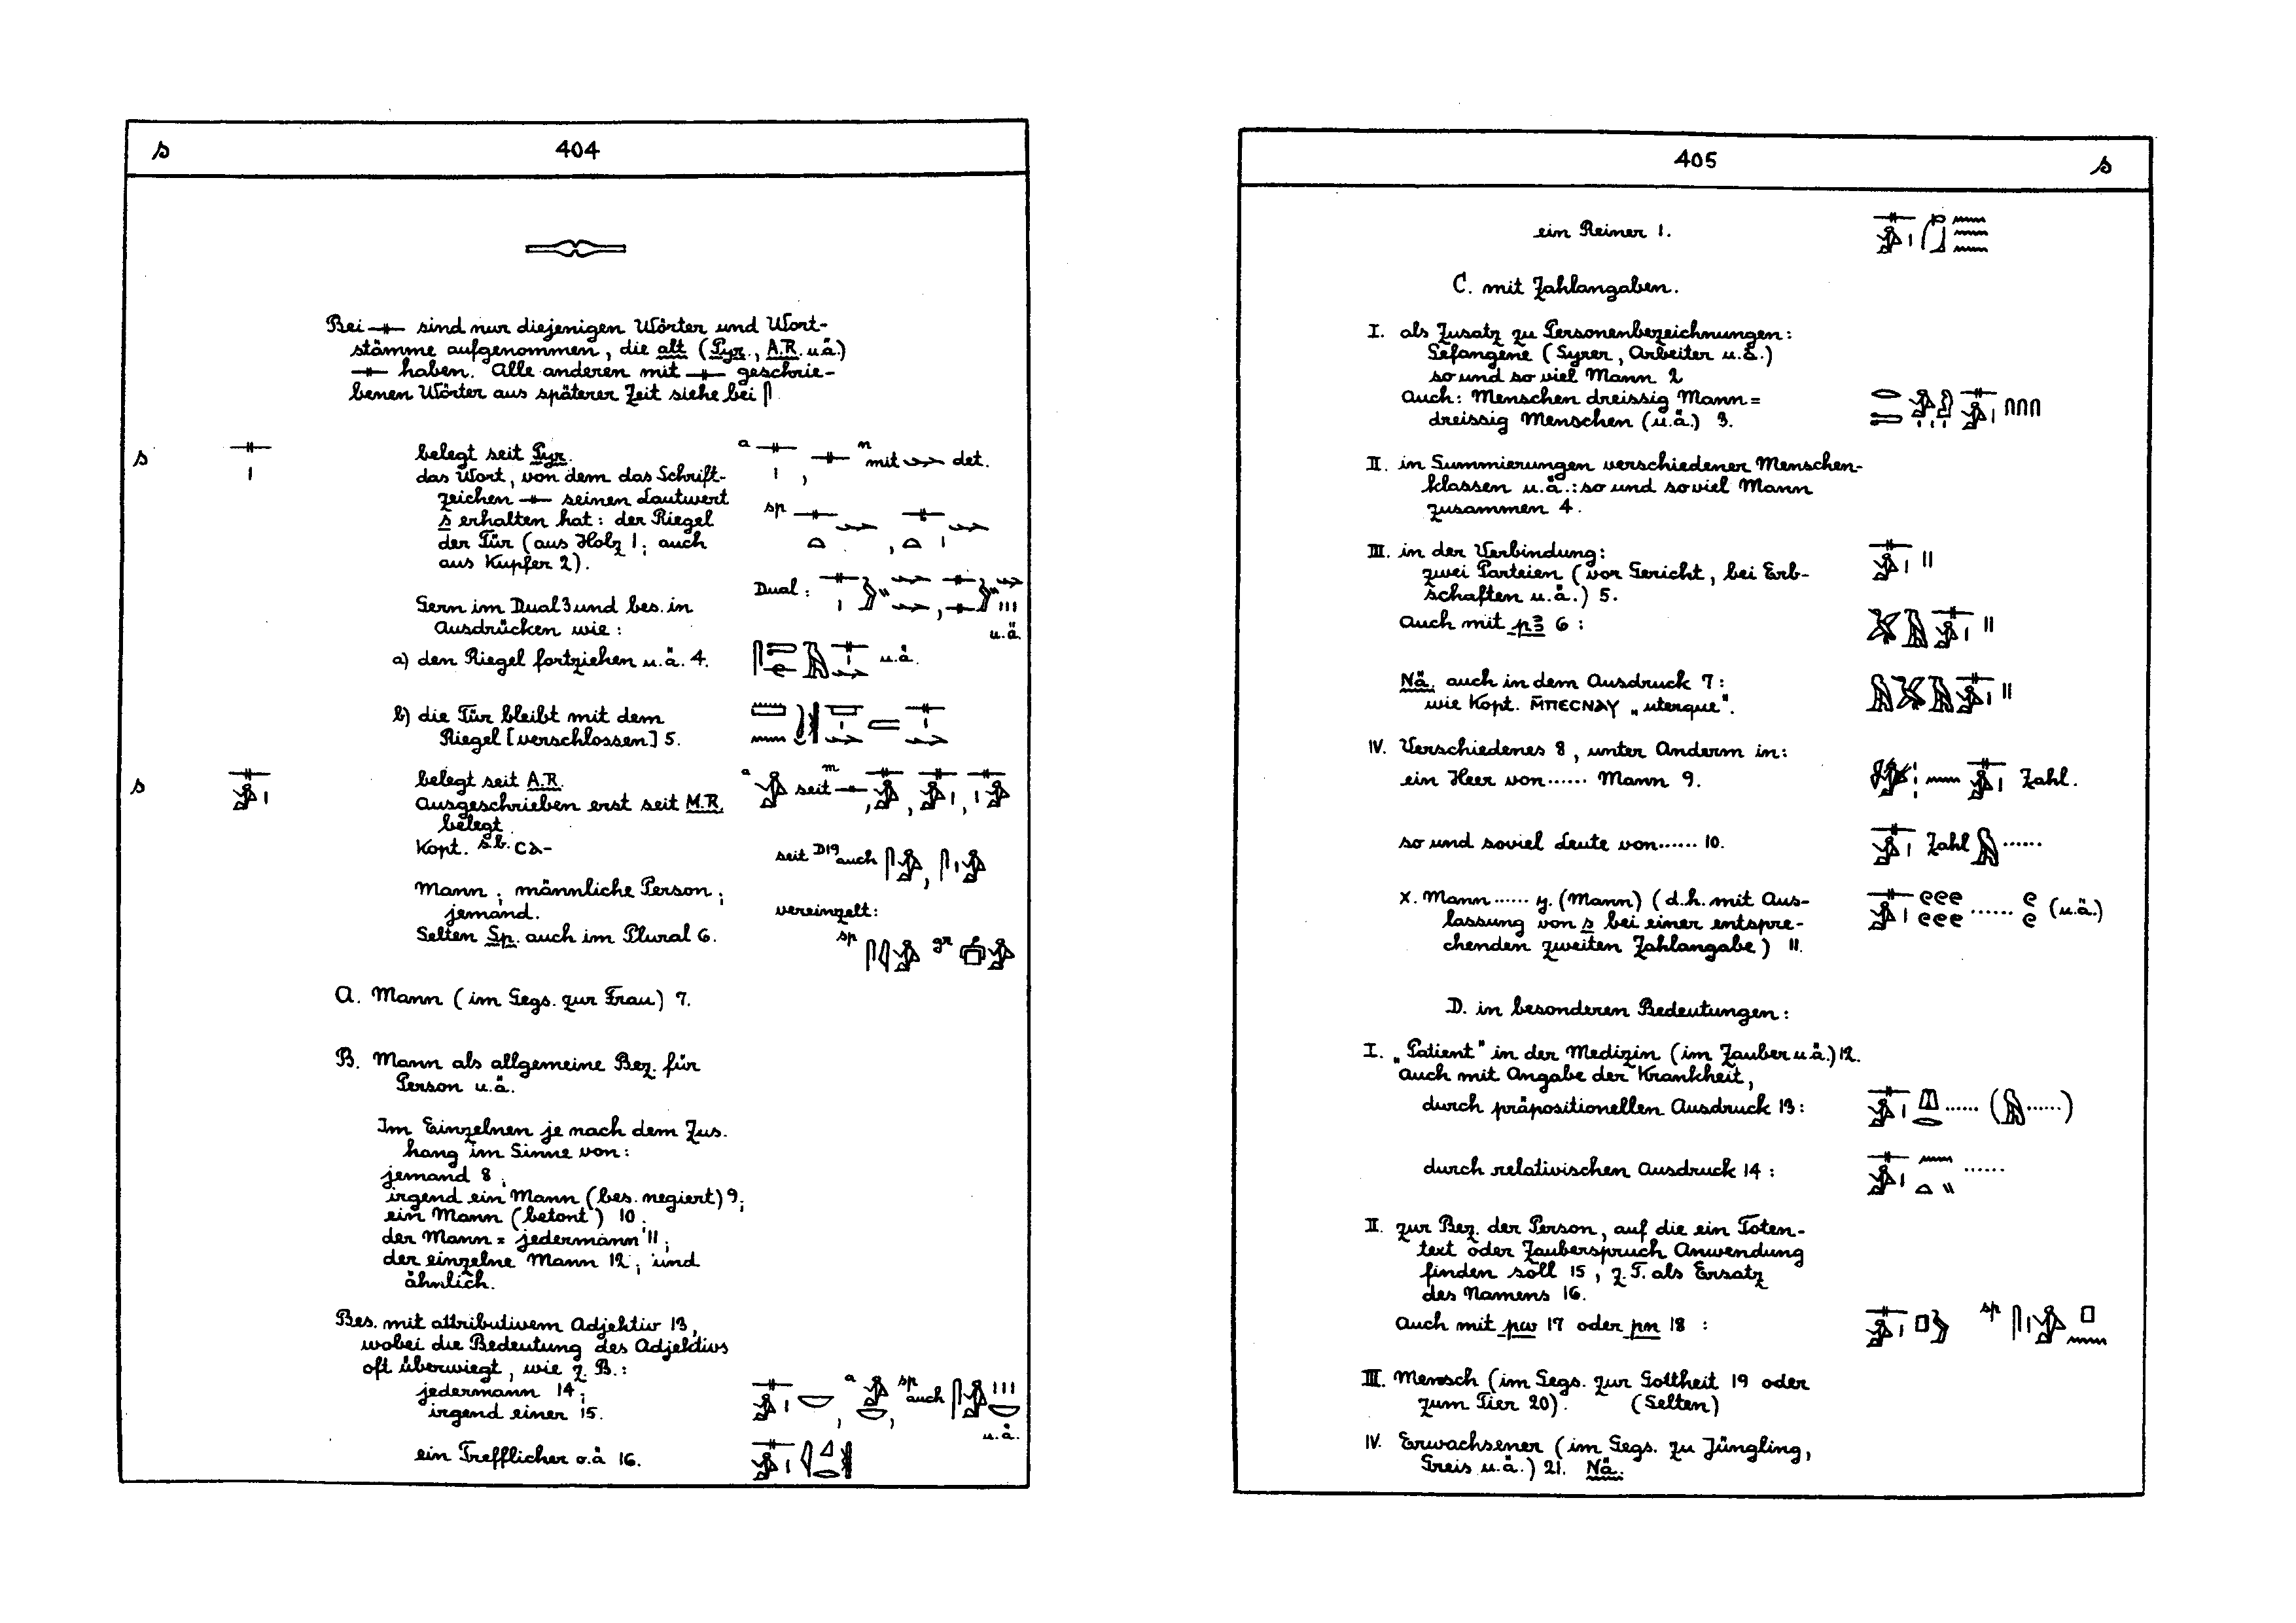 s 404
Bei 𓊃 sind nur diejenigen Wörter und Wort-
stämme aufgenommen, die alt (Pyr., A.R. u.ä.)
𓊃 haben. Alle anderen mit 𓊃 geschrie-
benen Wörter aus späterer Zeit siehe bei 𓋴
s 𓊃𓏤 belegt seit Pyr. a 𓊃𓏤, n 𓊃 mit det.
das Wort, von dem das Schrift-
zeichen 𓊃 seinen Lautwert
s erhalten hat: der Riegel sp
der Tür (aus Holz 1; auch
aus Kupfer 2).
Gern im Dual 3 und bes. in Dual:
Ausdrücken wie: u.ä.
a) den Riegel fortziehen u.ä. 4. u.ä.
b) die Tür bleibt mit dem
Riegel [verschlossen] 5.
s 𓊃𓀀𓏤 belegt seit A.R. a 𓀀 seit m 𓊃𓀀, 𓊃𓀀𓏤, 𓊃𓏤𓀀
Ausgeschrieben erst seit M.R.
belegt.
Kopt. s.b. ⲥⲁ- seit D19 auch 𓋴𓀀, 𓋴𓏤𓀀
Mann; männliche Person;
jemand. vereinzelt:
Selten Sp. auch im Plural 6. sp gr
A. Mann (im Gegs. zur Frau) 7.
B. Mann als allgemeine Bez. für
Person u.ä.
Im Einzelnen je nach dem Zus.
hang im Sinne von:
jemand 8;
irgend ein Mann (bes. negiert) 9;
ein Mann (betont) 10;
der Mann = jedermann 11;
der einzelne Mann 12; und
ähnlich.
Bes. mit attributivem Adjektiv 13,
wobei die Bedeutung des Adjektivs
oft überwiegt, wie z. B.:
jedermann 14; 𓊃𓀀𓏤𓎟, a 𓀀𓎟, sp auch 𓋴𓀀𓏥𓎟
irgend einer 15. u.ä.
ein Trefflicher o.ä 16.
405 s
ein Reiner 1.
C. mit Zahlangaben.
I. als Zusatz zu Personenbezeichnungen:
Gefangene (Syrer, Arbeiter u.ä.)
so und so viel Mann 2
Auch: Menschen dreissig Mann =
dreissig Menschen (u.ä.) 3. 𓂋𓍿𓀀𓁐𓏥𓊃𓀀𓏤𓎆𓎆𓎆
II. in Summierungen verschiedener Menschen-
klassen u.ä.: so und soviel Mann
zusammen 4.
III. in der Verbindung: 𓊃𓀀𓏤𓏻
zwei Parteien (vor Gericht, bei Erb-
schaften u.ä.) 5.
Auch mit pꜣ 6: 𓅮𓅓𓊃𓀀𓏤𓏻
Nä. auch in dem Ausdruck 7: 𓅓𓅮𓅓𓊃𓀀𓏤𓏻
wie Kopt. ⲙ̄ⲡⲉⲥⲛⲁⲩ „uterque".
IV. Verschiedenes 8, unter Anderm in:
ein Heer von ...... Mann 9. Zahl.
so und soviel Leute von ...... 10. 𓊃𓀀𓏤 Zahl 𓅓 ......
x. Mann ...... y. (Mann) (d.h. mit Aus- 𓊃𓀀𓏤 𓍢𓍢𓍢𓍢𓍢𓍢 ...... 𓍢𓍢 (u.ä.)
lassung von s bei einer entspre-
chenden zweiten Zahlangabe) 11.
D. in besonderen Bedeutungen:
I. „Patient" in der Medizin (im Zauber u.ä.) 12.
auch mit Angabe der Krankheit,
durch präpositionellen Ausdruck 13: 𓊃𓀀𓏤𓐍𓂋 ...... (𓅓 ......)
durch relativischen Ausdruck 14: 𓊃𓀀𓏤𓈖𓏏𓏭 ......
II. zur Bez. der Person, auf die ein Toten-
text oder Zauberspruch Anwendung
finden soll 15, z. T. als Ersatz
des Namens 16.
Auch mit pw 17 oder pn 18: 𓊃𓀀𓏤𓊪𓅱 sp 𓋴𓏤𓀀𓊪𓈖
III. Mensch (im Gegs. zur Gottheit 19 oder
zum Tier 20). (Selten)
IV. Erwachsener (im Gegs. zu Jüngling,
Greis u.ä.) 21. Nä.